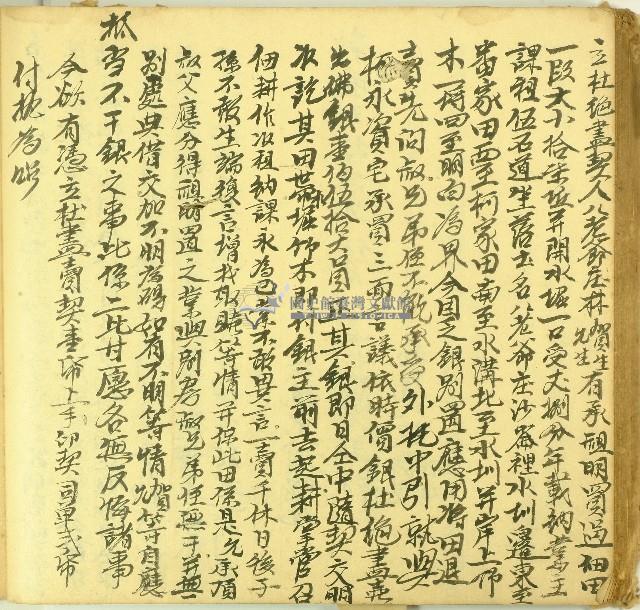 立杜絕盡契人八老爺庄林賀生先生有承祖明買過佃田
一段大小拾柒坵并開水堀一口受丈捌分年載納業主
課祖伍石道坐落土名八老爺庄沙崙裡水圳邊東至
番家田西至柯家田南至水溝北至水圳并岸上竹
木一埒四至明白為界今因乏銀別置應用將田退
賣先問叔兄弟侄不能承受外托中引就與
水賓宅承買三面言議依時價銀杜絕盡賣
出佛銀壹佰伍拾大員其銀即日仝中隨契交明
收訖其田茔堀竹木即付銀主前去起耕掌管召
佃耕作收租納課永為己業不敢異言一賣千休日後子
孫不敢生端穩言增找取贖等情并保此田係是允承頂
叔父應分得祖明置之業與別房叔兄弟侄無干并無
別處典借交加不明為碍如有不明等情賀等自應
抵當不干銀主之事此係二比甘愿各無反悔諸事
今欲有憑立杜盡賣契壹帋上手印契司單弍帋
付執為炤
國史館臺灣文獻館